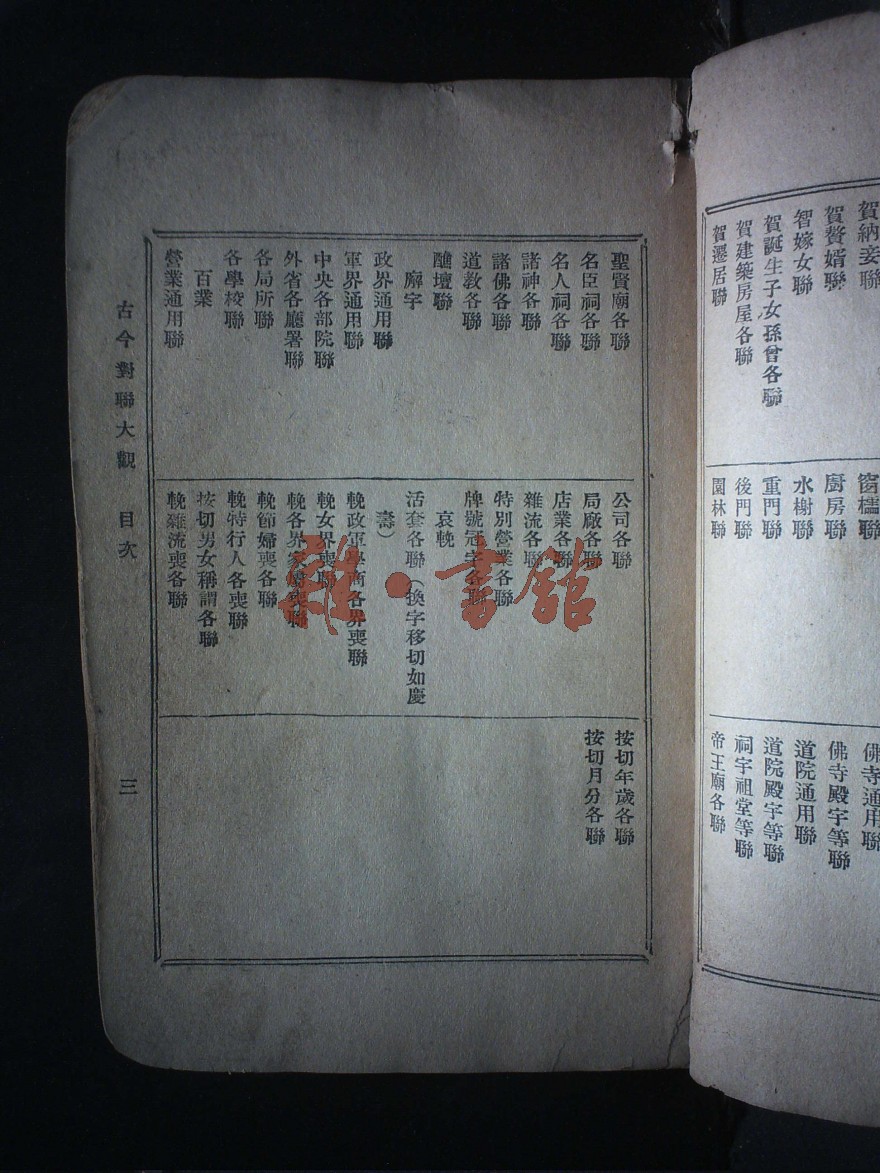 賀納妾聯
賀贅婿聯
智嫁女聯
賀誕生子女孫曾各聯
賀建築房屋各聯
賀遷居聯
窗櫺聯
廚房聯
水榭聯
重門聯
後門聯
園林聯
佛寺通用聯
佛寺殿宇等聯
道院通用聯
道院殿宇等聯
祠宇祖堂等聯
帝王廟各聯
聖賢廟各聯
名臣祠各聯
名人祠各聯
諸神各聯
諸佛各聯
道教各聯
醮壇聯
廨宇
政界通用聯
軍界通用聯
中央各部院聯
外省各廳署聯
各局所聯
各學校聯
百業
營業通用聯
公司各聯
局廠各聯
店業各聯
雜流各聯
特別營業各聯
牌號冠字各聯
哀輓
活套各聯（換字移切如慶
壽）
輓政軍學商各界喪聯
輓女界喪聯
輓各界家屬喪聯
輓節婦喪各聯
輓特行人各喪聯
按切男女稱謂各聯
輓雜流喪各聯
按切年歲各聯
按切月分各聯
古今對聯大觀 目次 三
雜·書館